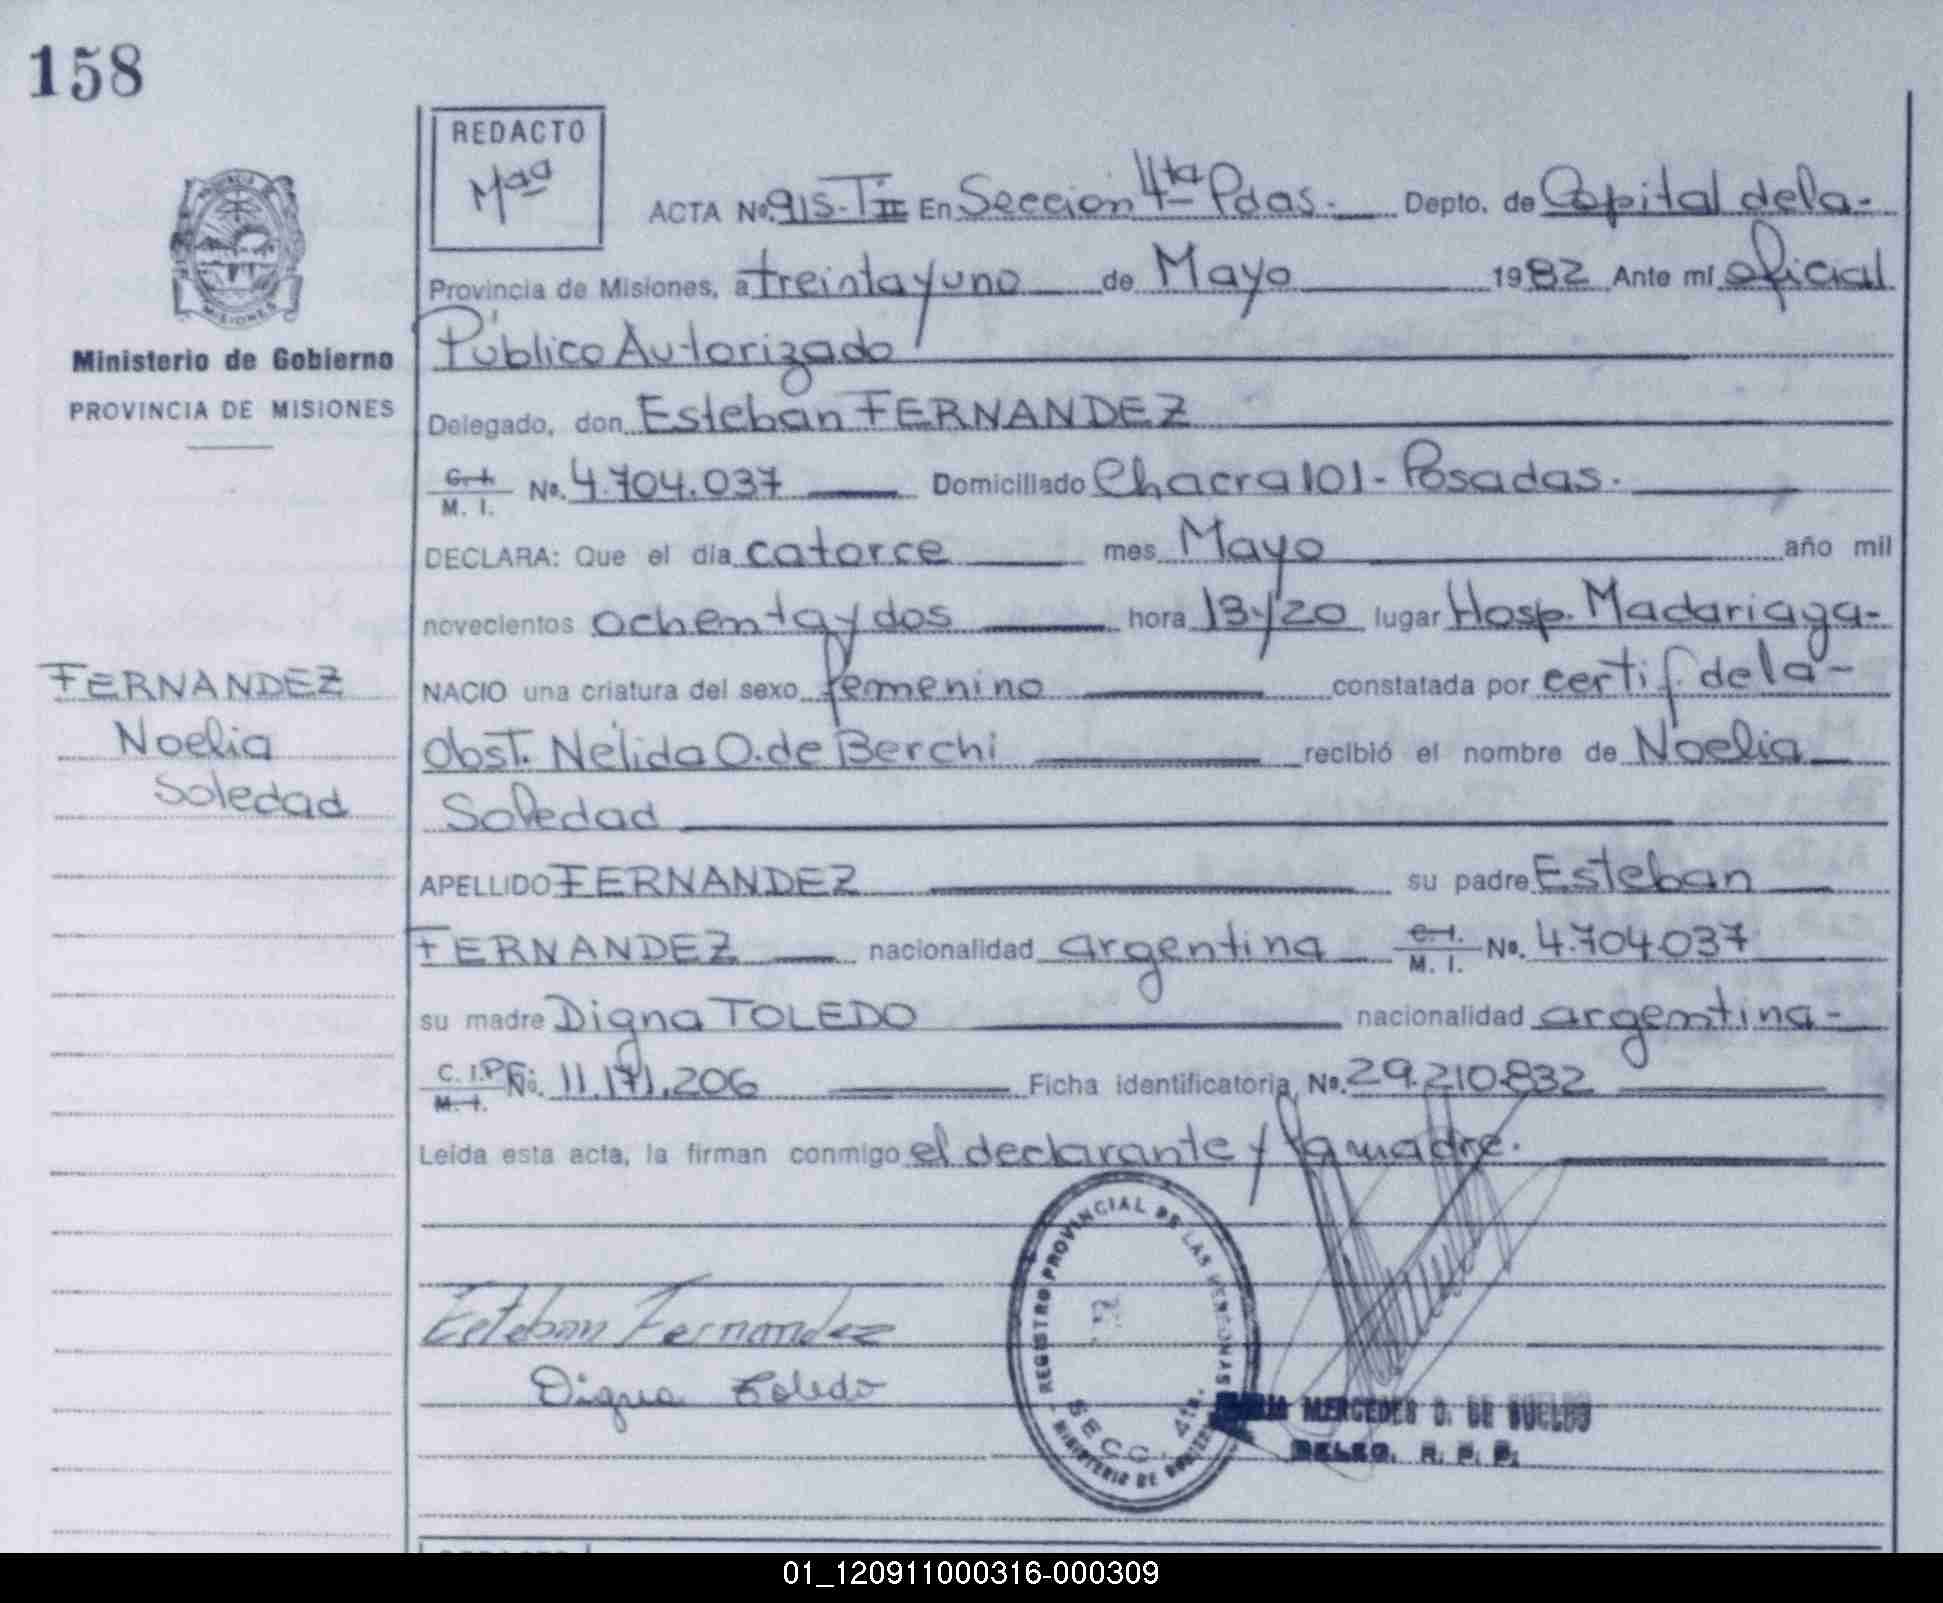 158
REDACTO
Mªª
ACTA Nº 915-T II En Sección 4ta Pdas. Depto. de Capital de la-
Provincia de Misiones, a treinta y uno de Mayo 1982 Ante mí oficial
Público Autorizado
Delegado, don Esteban FERNANDEZ
C. I. M. I. Nº. 4.704.037 Domiciliado Chacra 101 - Posadas.
DECLARA: Que el día catorce mes Mayo año mil
novecientos ochenta y dos hora 13y20 lugar Hosp. Madariaga-
NACIO una criatura del sexo femenino constatada por certif. de la-
Obst. Nélida O. de Berchi recibió el nombre de Noelia
Soledad
APELLIDO FERNANDEZ su padre Esteban
FERNANDEZ nacionalidad argentina C. I. M. I. Nº. 4.704.037
su madre Digna TOLEDO nacionalidad argentina-
C. I. P.F. M. I. Nº. 11.171.206 Ficha identificatoria Nº. 29.210.832
Leída esta acta, la firman conmigo el declarante y la madre.
Esteban Fernandez
Digna Toledo
REGISTRO PROVINCIAL DE LAS PERSONAS
SECC. 4ta.
MINISTERIO DE GOBIERNO
MERCEDES D. DE
DELEG. R. P. P.
MISIONES
Ministerio de Gobierno
PROVINCIA DE MISIONES
FERNANDEZ
Noelia
Soledad
01_120911000316-000309